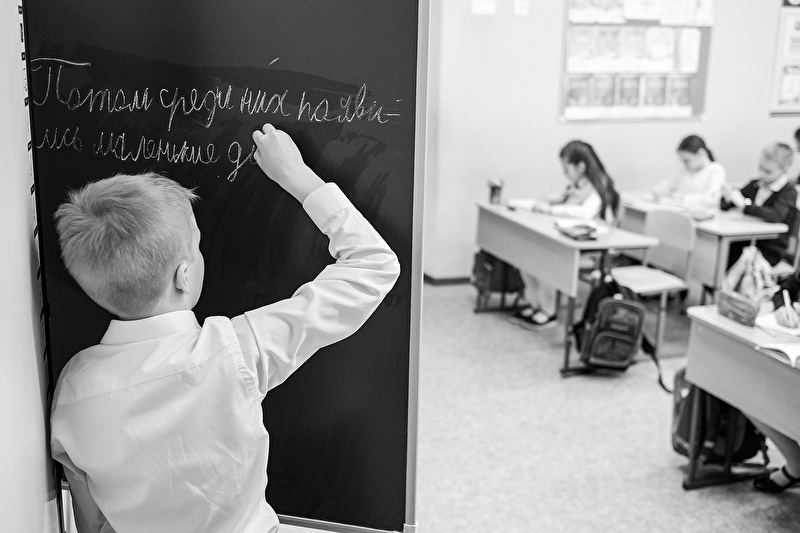 Потом среди них появи-
лись маленькие д